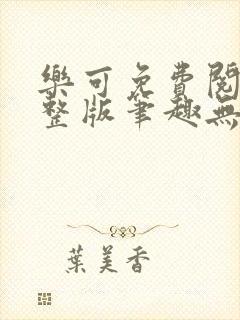 樂可免費閱
整版筆趣無
葉美香